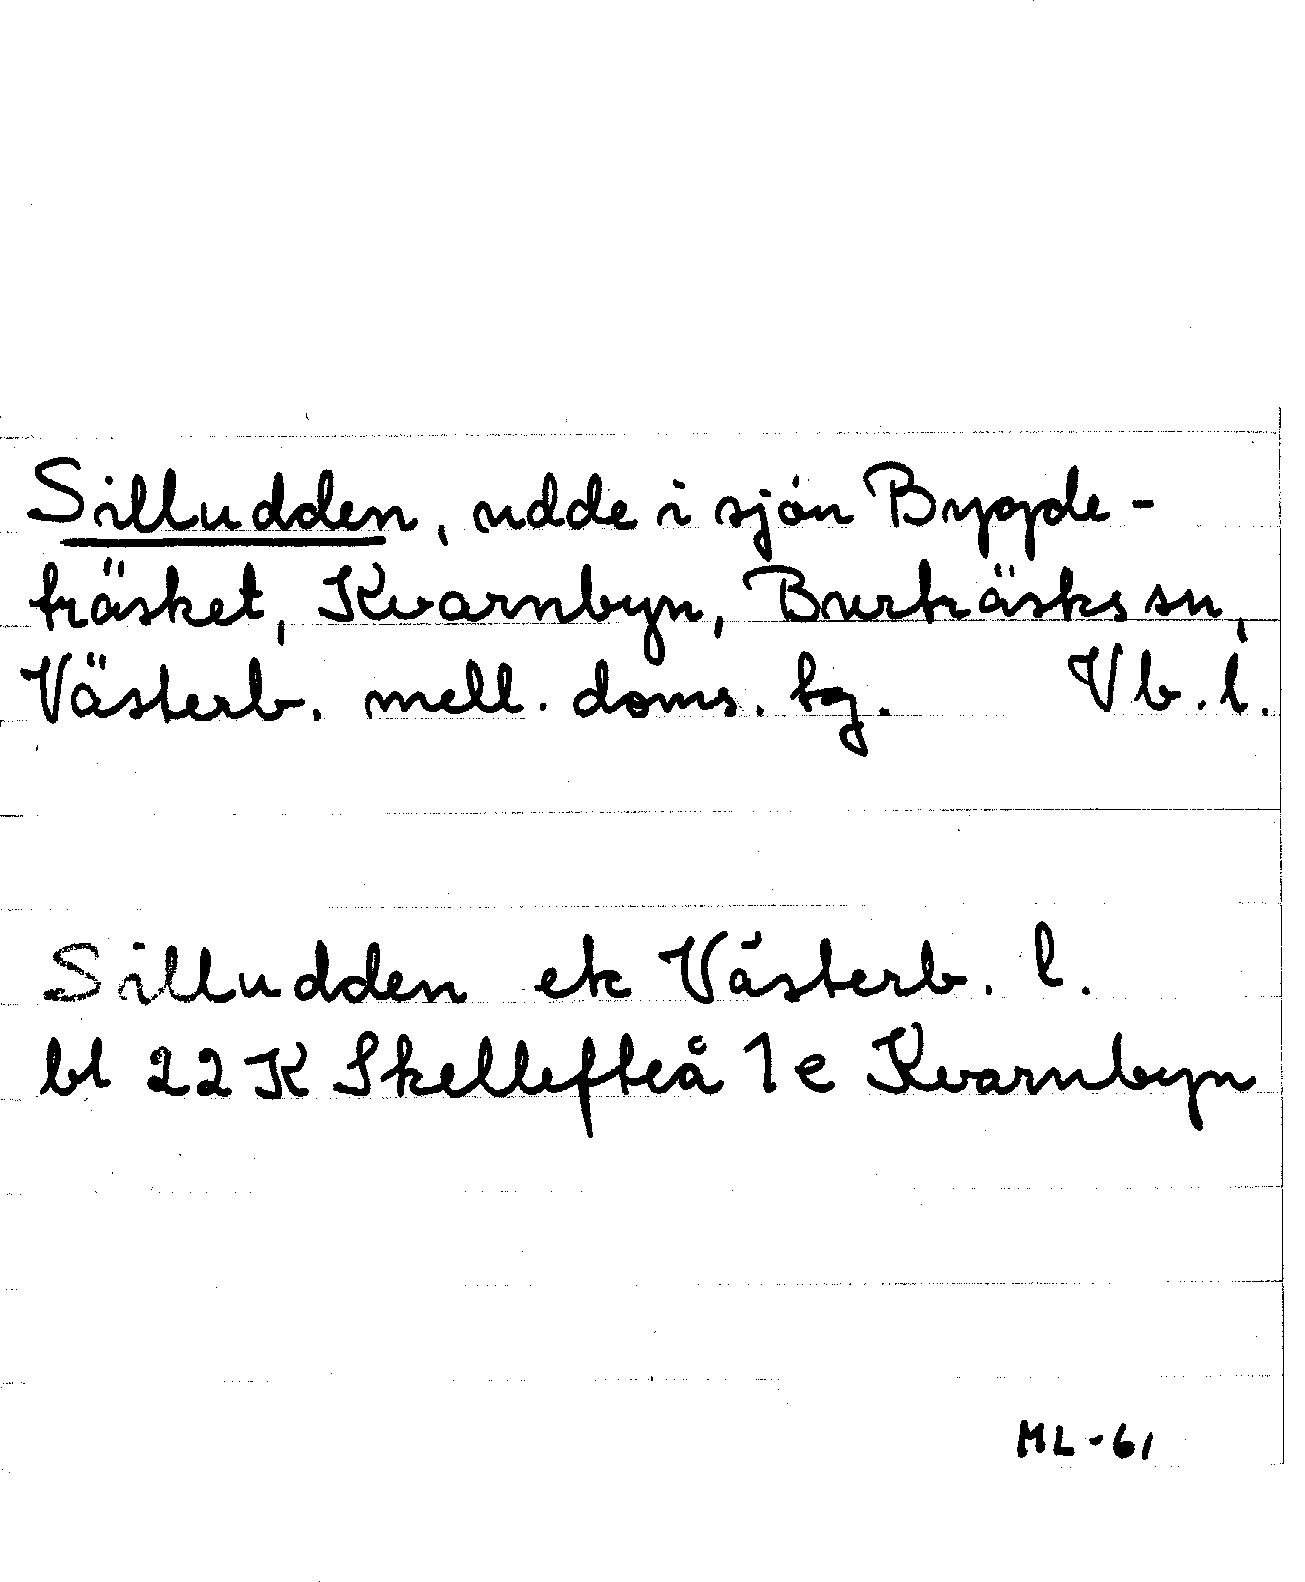 Silludden, udde i sjön Bygde-
träsket, Kvarnbyn, Burträsks sn,
Västerb. mell. doms. tg. Vb. l.
Silludden ek Västerb. l.
bl 22 K Skellefteå 1 e Kvarnbyn
ML-61